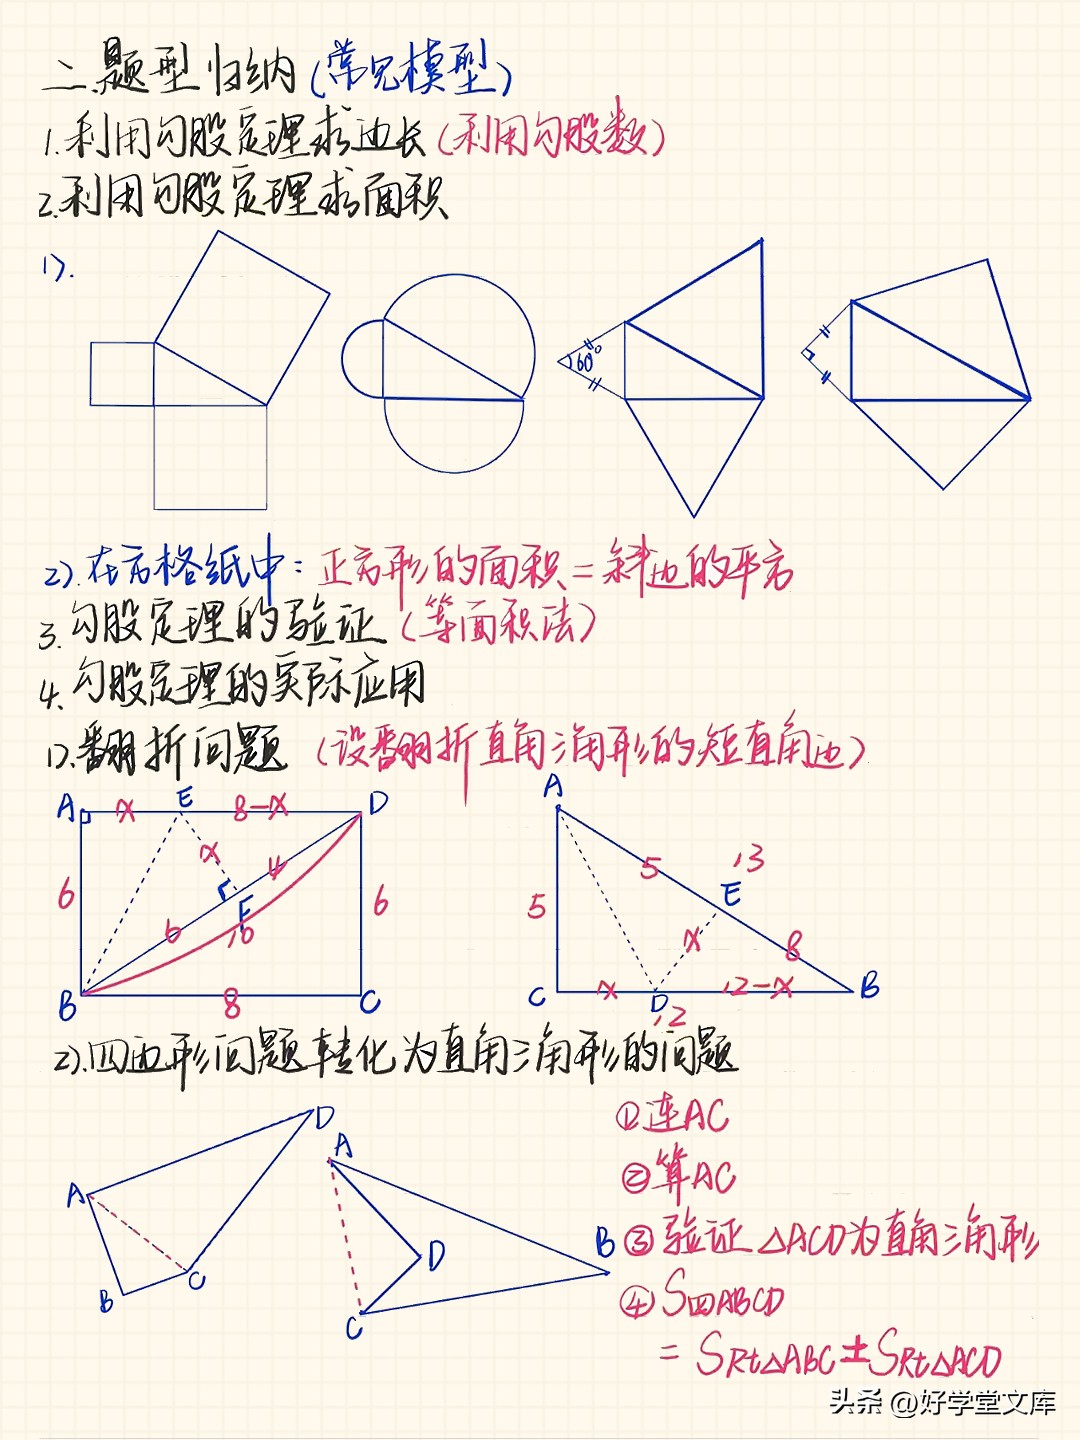 二.题型归纳(常见模型)
1.利用勾股定理求边长(利用勾股数)
2.利用勾股定理求面积
1).
60°
2).在方格纸中：正方形的面积=斜边的平方
3.勾股定理的验证(等面积法)
4.勾股定理的实际应用
1).翻折问题 (设翻折直角三角形的短直角边)
A x E 8-x D
x 4
6 F 6
6 10
B 8 C
A
5 13
5 E
x 8
C x D 12-x B
12
2).四边形问题转化为直角三角形的问题
D
A
B C
A
D
B
C
①连AC
②算AC
③验证△ACD为直角三角形
④S四ABCD
=SRt△ABC±SRt△ACD
头条@好学堂文库